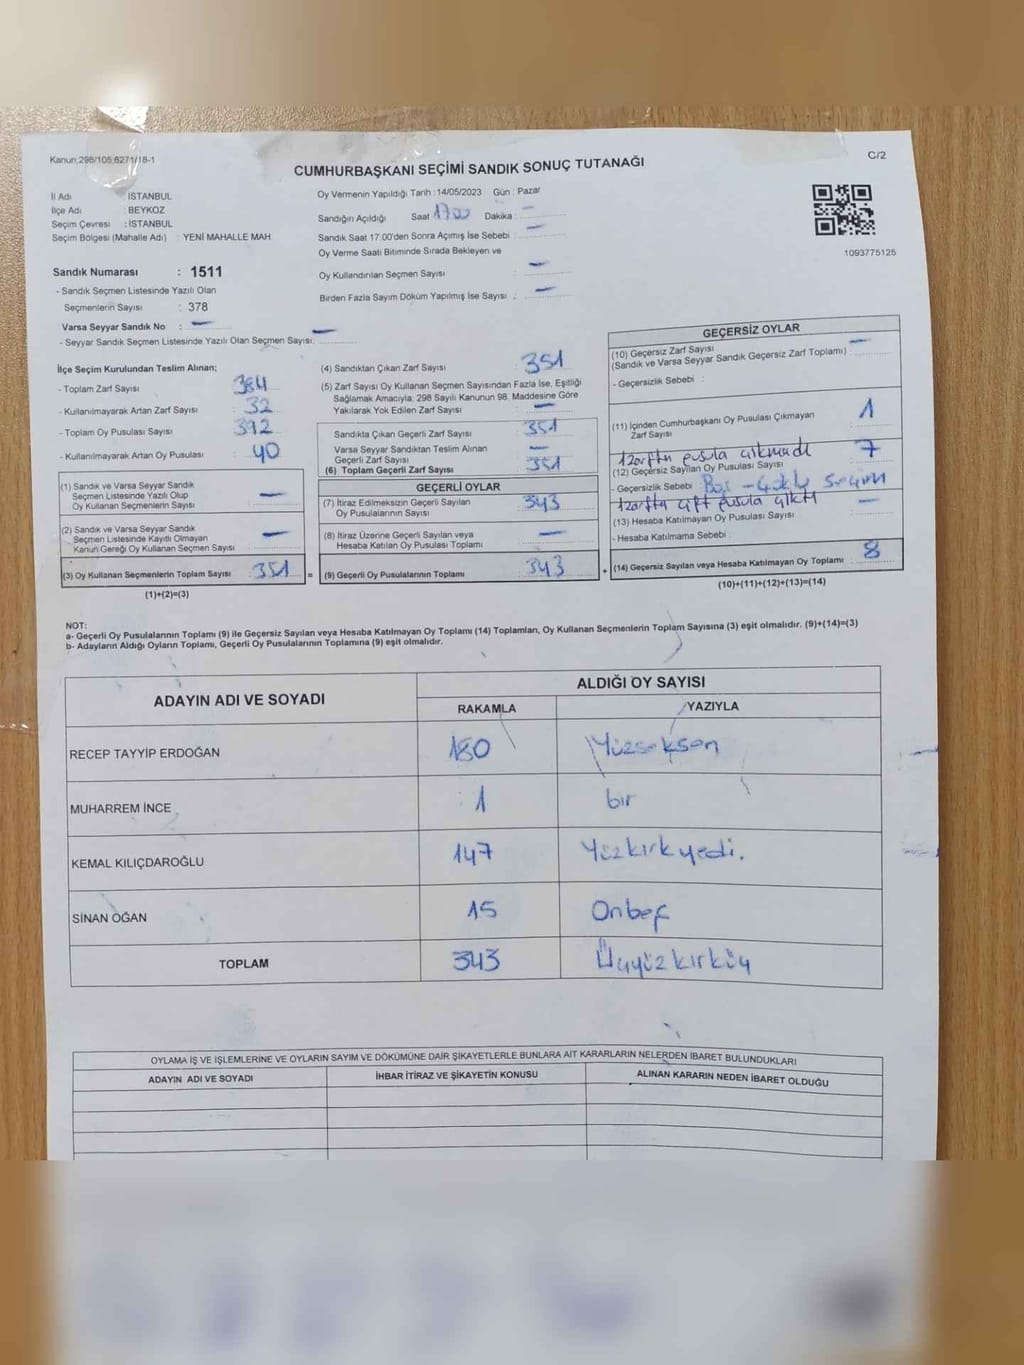 Kanun;298/105;6271/18-1
C/2
CUMHURBAŞKANI SEÇİMİ SANDIK SONUÇ TUTANAĞI
İl Adı : İSTANBUL
İlçe Adı : BEYKOZ
Seçim Çevresi : İSTANBUL
Seçim Bölgesi (Mahalle Adı) : YENİ MAHALLE MAH.
Oy Vermenin Yapıldığı Tarih : 14/05/2023 Gün : Pazar
Sandığın Açıldığı Saat 1700 Dakika : -
Sandık Saat 17:00'den Sonra Açımış İse Sebebi : -
Oy Verme Saati Bitiminde Sırada Bekleyen ve
Oy Kullandırılan Seçmen Sayısı : -
Birden Fazla Sayım Döküm Yapılmış İse Sayısı : -
1093775125
Sandık Numarası : 1511
- Sandık Seçmen Listesinde Yazılı Olan
Seçmenlerin Sayısı : 378
Varsa Seyyar Sandık No : -
- Seyyar Sandık Seçmen Listesinde Yazılı Olan Seçmen Sayısı: -
İlçe Seçim Kurulundan Teslim Alınan;
- Toplam Zarf Sayısı 384
- Kullanılmayarak Artan Zarf Sayısı 32
- Toplam Oy Pusulası Sayısı 392
- Kullanılmayarak Artan Oy Pusulası 40
(1) Sandık ve Varsa Seyyar Sandık
Seçmen Listesinde Yazılı Olup
Oy Kullanan Seçmenlerin Sayısı -
(2) Sandık ve Varsa Seyyar Sandık
Seçmen Listesinde Kayıtlı Olmayan
Kanun Gereği Oy Kullanan Seçmen Sayısı -
(3) Oy Kullanan Seçmenlerin Toplam Sayısı : 351 =
(1)+(2)=(3)
(4) Sandıktan Çıkan Zarf Sayısı : 351
(5) Zarf Sayısı Oy Kullanan Seçmen Sayısından Fazla İse, Eşitliği
Sağlamak Amacıyla; 298 Sayılı Kanunun 98. Maddesine Göre
Yakılarak Yok Edilen Zarf Sayısı : -
Sandıkta Çıkan Geçerli Zarf Sayısı : 351
Varsa Seyyar Sandıktan Teslim Alınan
Geçerli Zarf Sayısı -
(6) Toplam Geçerli Zarf Sayısı : 351
GEÇERLİ OYLAR
(7) İtiraz Edilmeksizin Geçerli Sayılan
Oy Pusulalarının Sayısı : 343
(8) İtiraz Üzerine Geçerli Sayılan veya
Hesaba Katılan Oy Pusulası Toplamı : -
(9) Geçerli Oy Pusulalarının Toplamı : 343 +
GEÇERSİZ OYLAR
(10) Geçersiz Zarf Sayısı
(Sandık ve Varsa Seyyar Sandık Geçersiz Zarf Toplamı) : -
- Geçersizlik Sebebi :
(11) İçinden Cumhurbaşkanı Oy Pusulası Çıkmayan
Zarf Sayısı 1
1 zarftn pusula çıkmadı
(12) Geçersiz Sayılan Oy Pusulası Sayısı 7
- Geçersizlik Sebebi Boş - Çoklu seçim
1 zarftn çift pusula çıktı
(13) Hesaba Katılmayan Oy Pusulası Sayısı -
- Hesaba Katılmama Sebebi
(14) Geçersiz Sayılan veya Hesaba Katılmayan Oy Toplamı : 8
(10)+(11)+(12)+(13)=(14)
NOT:
a- Geçerli Oy Pusulalarının Toplamı (9) ile Geçersiz Sayılan veya Hesaba Katılmayan Oy Toplamı (14) Toplamları, Oy Kullanan Seçmenlerin Toplam Sayısına (3) eşit olmalıdır. (9)+(14)=(3)
b- Adayların Aldığı Oyların Toplamı, Geçerli Oy Pusulalarının Toplamına (9) eşit olmalıdır.
ADAYIN ADI VE SOYADI ALDIĞI OY SAYISI
RAKAMLA YAZIYLA
RECEP TAYYİP ERDOĞAN 180 Yüzseksen
MUHARREM İNCE 1 bir
KEMAL KILIÇDAROĞLU 147 Yüzkırkyedi.
SİNAN OĞAN 15 Onbeş
TOPLAM 343 Üçyüzkırküç
OYLAMA İŞ VE İŞLEMLERİNE VE OYLARIN SAYIM VE DÖKÜMÜNE DAİR ŞİKAYETLERLE BUNLARA AİT KARARLARIN NELERDEN İBARET BULUNDUKLARI
ADAYIN ADI VE SOYADI İHBAR İTİRAZ VE ŞİKAYETİN KONUSU ALINAN KARARIN NEDEN İBARET OLDUĞU